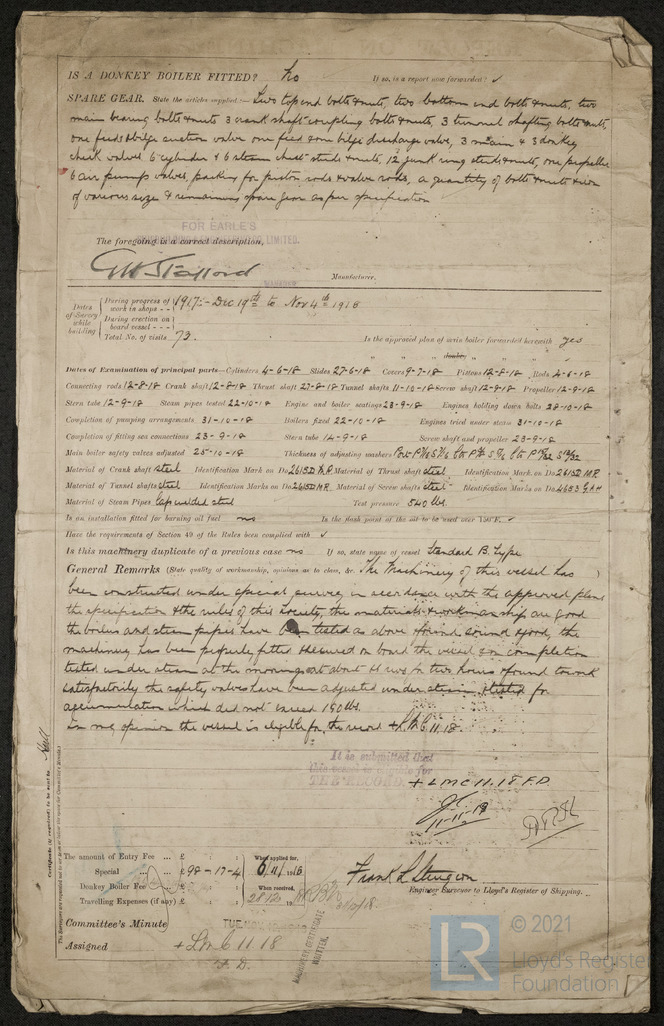 IS A DONKEY BOILER FITTED? No If so, is a report now forwarded? ✓
SPARE GEAR. State the articles supplied:— Two top end bolts & nuts, two bottom end bolts & nuts, two
main bearing bolts & nuts 3 crank shaft coupling bolts & nuts, 3 tunnel shafting bolts & nuts,
one feed & bilge suction valve one feed & one bilge discharge valve, 3 main & 3 donkey
check valves 6 cylinder & 6 steam chest studs & nuts, 12 junk ring studs & nuts, one propeller
6 air pump valves, packing for piston rods & valve rods, a quantity of bolts & nuts & iron
of various sizes & remaining spare gear as per specification
FOR EARLE'S
LIMITED.
The foregoing is a correct description,
Manufacturer.
Dates of Survey while building
During progress of work in shops - - 1917:- Dec 19th to Nov 4th 1918
During erection on board vessel - - -
Total No. of visits 73.
Is the approved plan of main boiler forwarded herewith yes
" " " donkey " " "
Dates of Examination of principal parts—Cylinders 4-6-18 Slides 27-6-18 Covers 9-7-18 Pistons 12-8-18 Rods 4-6-18
Connecting rods 12-8-18 Crank shaft 12-8-18 Thrust shaft 27-8-18 Tunnel shafts 11-10-18 Screw shaft 12-8-18 Propeller 12-9-18
Stern tube 12-9-18 Steam pipes tested 22-10-18 Engine and boiler seatings 23-9-18 Engines holding down bolts 28-10-18
Completion of pumping arrangements 31-10-18 Boilers fixed 22-10-18 Engines tried under steam 31-10-18
Completion of fitting sea connections 23-9-18 Stern tube 14-9-18 Screw shaft and propeller 23-9-18
Main boiler safety valves adjusted 25-10-18 Thickness of adjusting washers
Material of Crank shaft steel Identification Mark on Do. Material of Thrust shaft steel Identification Mark on Do. 2615D M.R
Material of Tunnel shafts steel Identification Marks on Do. 2615D M.R. Material of Screw shafts steel Identification Marks on Do. 4653 G.A.H
Material of Steam Pipes Lap welded steel Test pressure 540 lbs.
Is an installation fitted for burning oil fuel no Is the flash point of the oil to be used over 150°F. ✓
Have the requirements of Section 49 of the Rules been complied with ✓
Is this machinery duplicate of a previous case no If so, state name of vessel Standard B. type
General Remarks (State quality of workmanship, opinions as to class, &c. The Machinery of this vessel has
been constructed under special survey in accordance with the approved plans
the specification & the rules of this Society, the materials & workmanship are good
the boilers and steam pipes have been tested as above & found sound & good, the
machinery has been properly fitted & secured on board the vessel & on completion
tested under steam at the moorings at about 61 revs for two hours & found to work
satisfactorily the safety valves have been adjusted under steam & tested for
accumulation which did not exceed 190 lbs.
In my opinion the vessel is eligible for the record + L.M.C 11.18.
It is submitted that
this vessel is eligible for
THE RECORD. + LMC 11.18 F.D.
11-11-18
Certificate (if required) to be sent to Hull
The amount of Entry Fee ... £ : : When applied for,
Special ... £ 98 - 17 - 4 6/11/1918
Donkey Boiler Fee ... £ : : When received,
Travelling Expenses (if any) £ : : 28.12.19
Engineer Surveyor to Lloyd's Register of Shipping.
Committee's Minute TUE. NOV
Assigned + LMC 11 18
F.D.
MACHINERY CERTIFICATE
WRITTEN.
LR © 2021
Lloyd's Register
Foundation